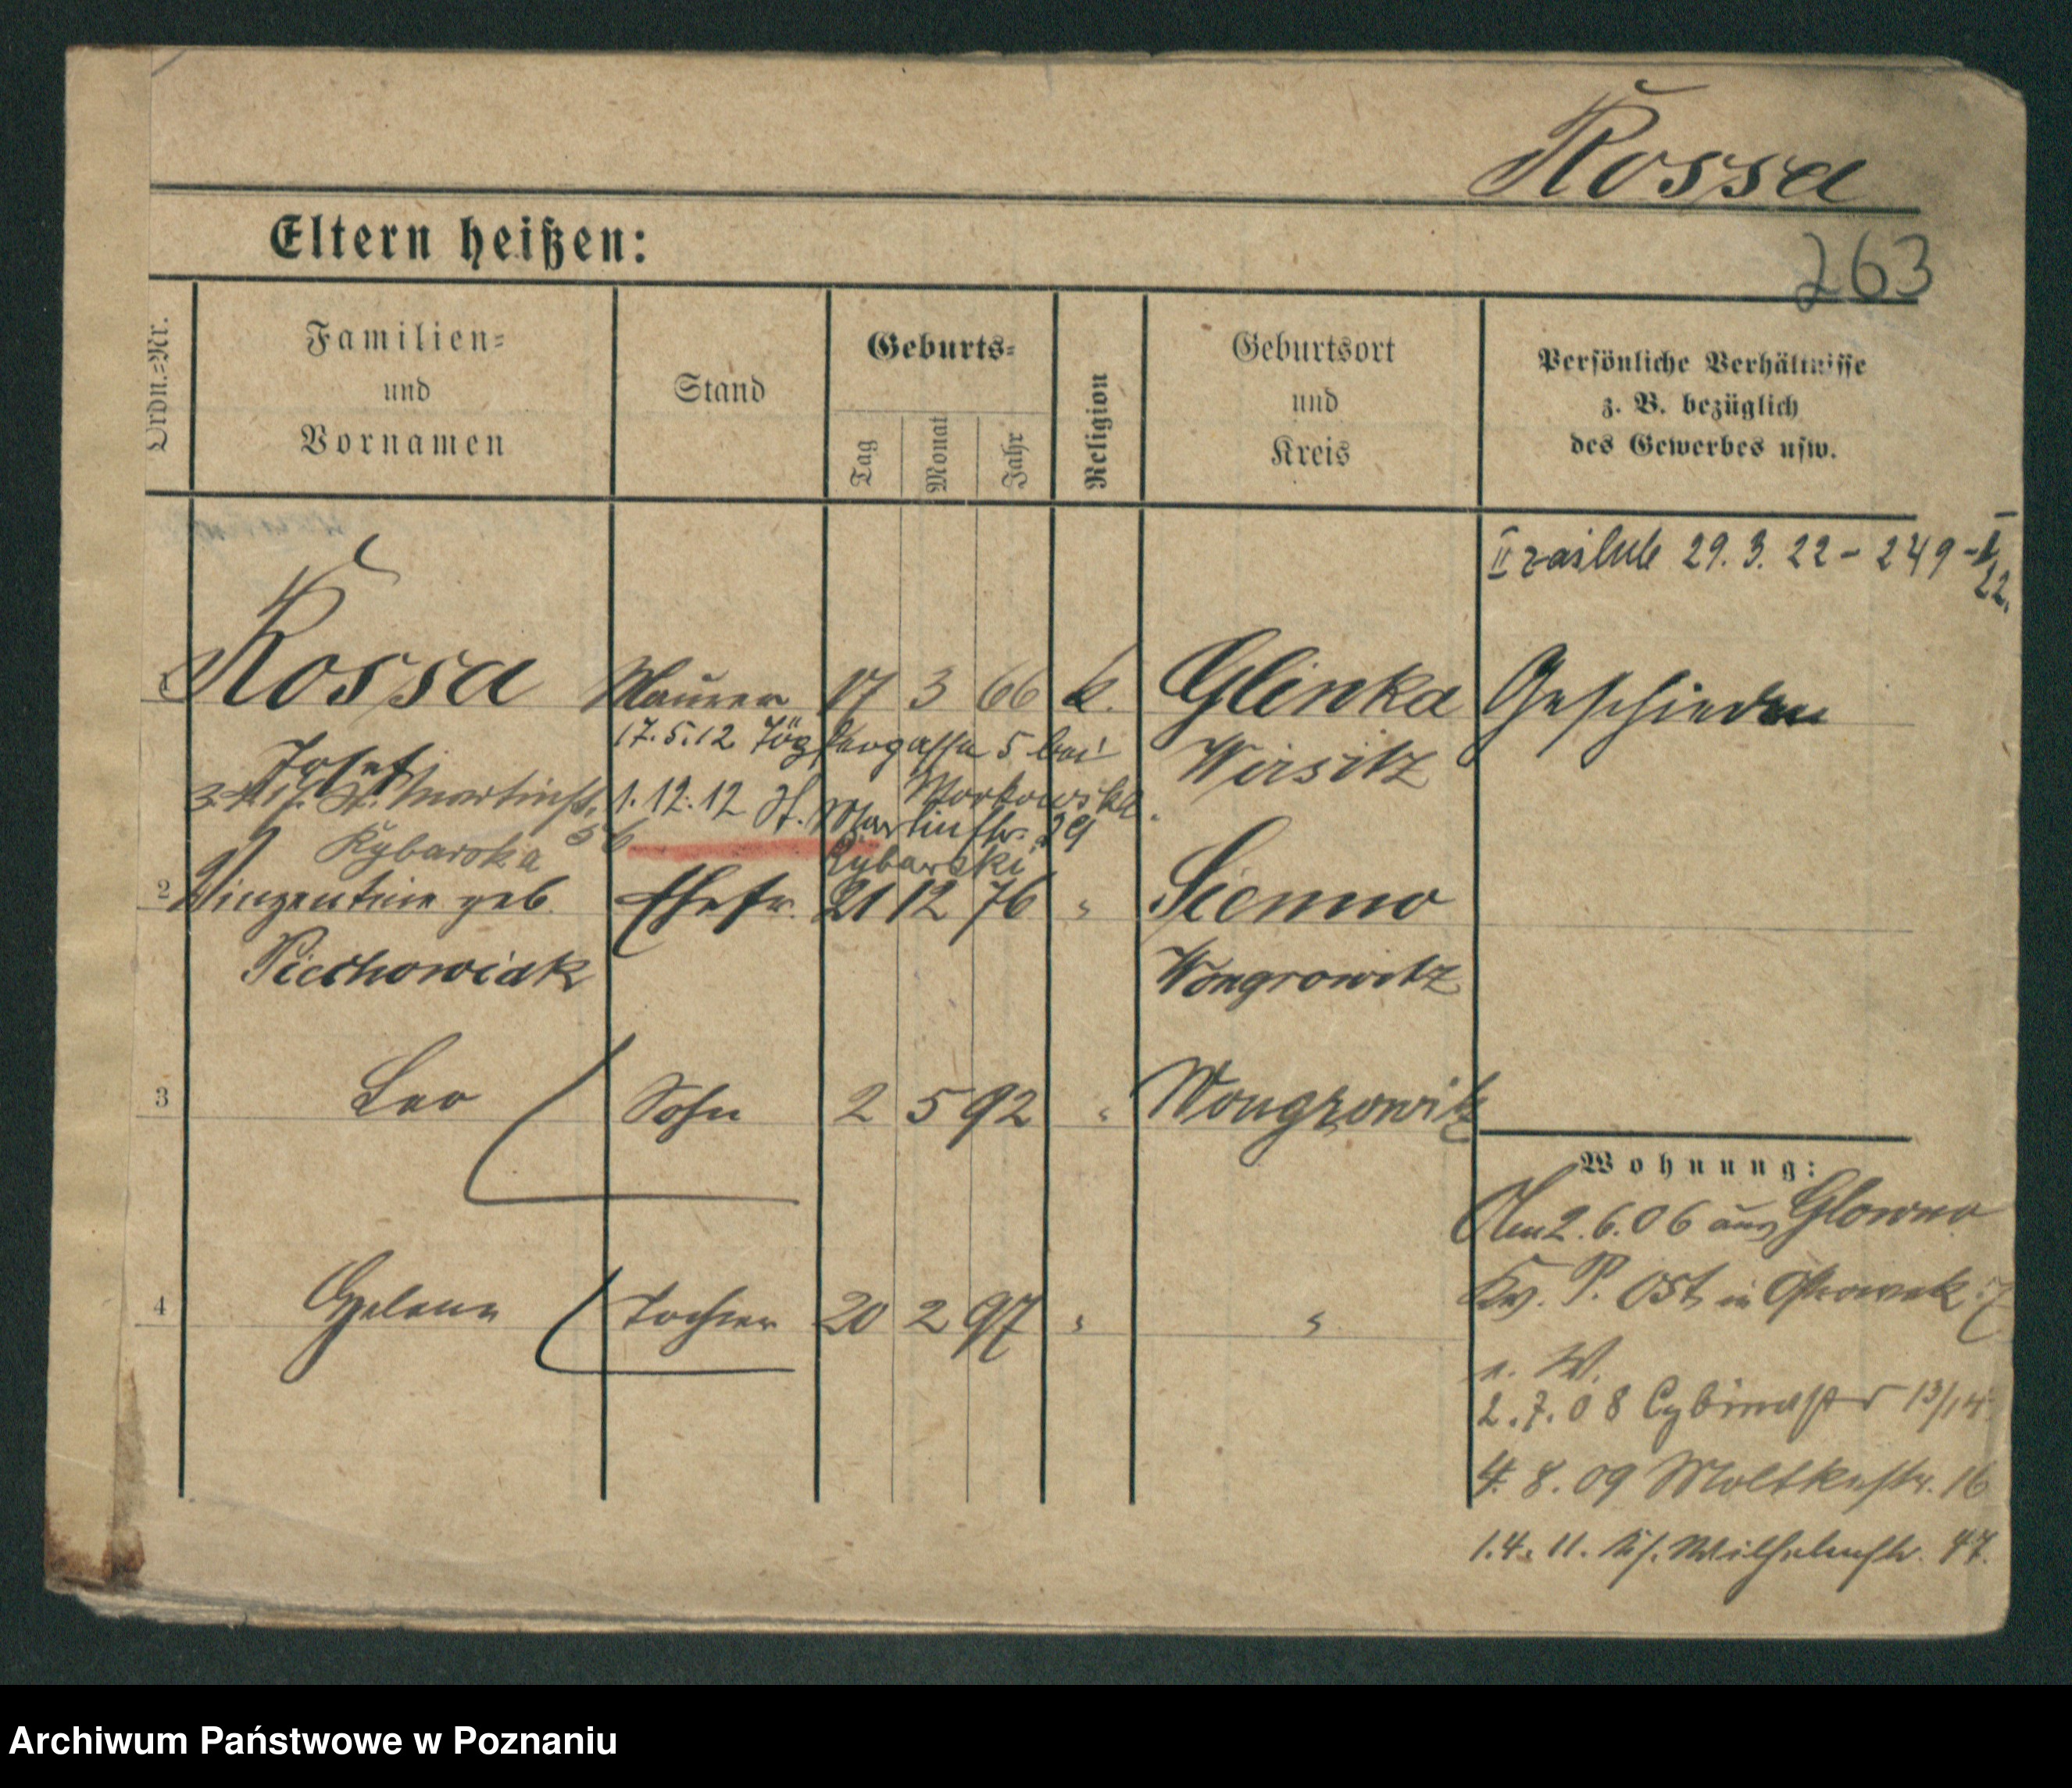 Rossa
Eltern heißen:
263
Ordn.=Nr.
Familien=
und
Vornamen
Stand
Geburts=
Tag
Monat
Jahr
Religion
Geburtsort
und
Kreis
Persönliche Verhältnisse
z. B. bezüglich
des Gewerbes usw.
II 29. 3. 22 - 249 - I
22.
1 Rossa Maurer 17 3 66 k. Glinka Geschieden
Josef 17.5.12 5 bei Wirsitz
St. Martinstr. 1.12.12 St. Martinstr. 29
Rybarska 56 Rybarski
2 Vinzentine geb. Ehefr. 21 12 76 " Sienno
Piechowiak Wongrowitz
3 Leo Sohn 2 5 92 " Wongrowitz
Wohnung:
2.6.06 aus Glowno
Kr. P. Ost in
4 Helene Tochter 20 2 97 " "
n. W.
2.7.08 Cybinastr 13/14
4. 8. 09 Moltkestr. 16
1.4.11. Wilhelmstr. 47.
Archiwum Państwowe w Poznaniu